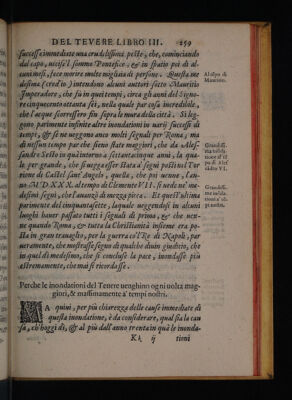 DEL TEVERE LIBRO III. 259
successe immediate una crudelissima peste, che, cominciando
dal capo, uccise'l sommo Pontefice, & in spatio poi di al-
cuni mesi, fece morire molte migliaia di persone. Questa me
desima (credo) intendono alcuni auttori sotto Mauritio
Imperadore, che fu in quei tempi, circa gli anni del Signo-
re cinquecento ottanta sei, nella quale par cosa incredibile,
che l'acque scorressero sin supra le mura della città. Si leg-
gono parimente infinite altre inondationi in varii successi di
tempi, & se ne veggono anco molti segnali per Roma; ma
di nissun tempo par che sieno state maggiori, che da Ales-
sandro Sesto in quà intorno a settantacinque anni, la qua-
le per grande, che si uegga esser stata a i segni posti nel Tor
rione di Castel sant'Angelo, quella, che poi uenne, l'an-
no M D XXX. al tempo di Clemente VII. si uede ne' me-
desimi segni, che l'auanzò di mezza picca. Et quest'ultima
parimente del cinquantasette, laquale uaggendosi in alcuni
luoghi hauer passato tutti i segnali di prima, & che uen-
ne quando Roma, & tutta la Christianità insieme era po-
sta in gran trauaglio, per la guerra col Re di Napoli, par
ueramente, che mostrasse segno di qualche diuin giudicio, che
in quel dì medesimo, che si concluse la pace, inondasse più
estremamente, che mai si ricordasse.
Al tẽpo di
Mauritio.
Grandissi-
ma inõda-
tione al tẽ
po di Ales
sãdro VI.
Grandissi-
me inõda-
tioni a' tẽ-
pi nostri.
Perche le inondationi del Teuere uenghino ogni uolta mag-
giori, & massimamente a' tempi nostri.
MA quini, per più chiarezza delle cause immediate di
questa inondatione, è da considerare, qual sia la cau
sa, ch'hoggi dì, & al più dall'anno trenta in quà le inonda-
Kk ij tioni